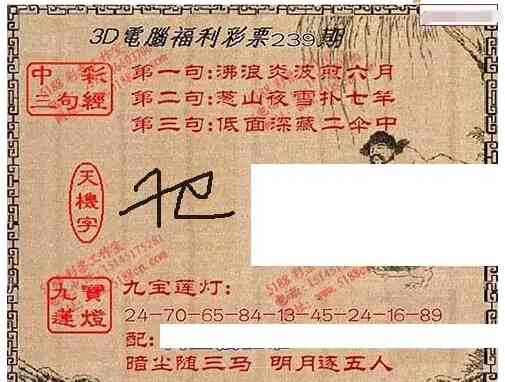 3D電腦福利彩票239期
中彩
三句經
第一句:沸浪炎波煎六月
第二句:葱山夜雪扑七羊
第三句:低面深藏二伞中
天機字
九寶
蓮燈
九宝莲灯:
24-70-65-84-13-45-24-16-89
配:
暗尘随三马 明月逐五人